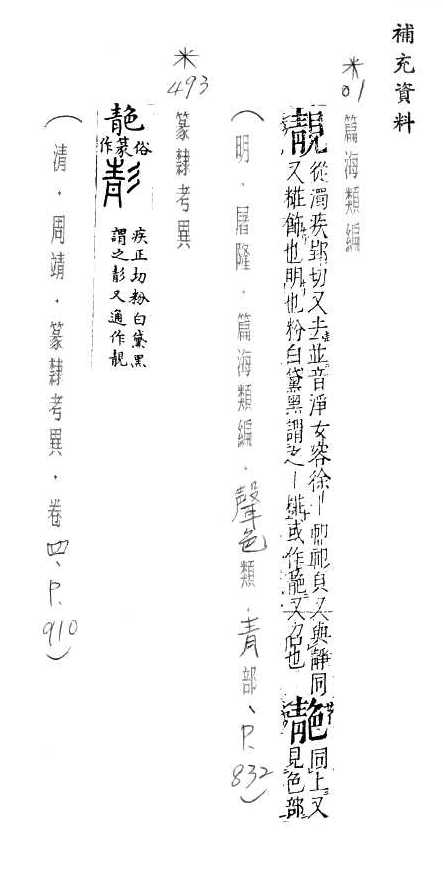 補充資料
*01
篇海類編
靚
從濁疾郢切又去並音淨女容徐丨
又糚飾也明也粉白黛黑謂之丨
或作䒌又召也
靘
同上又
見色部
(明.屠隆.篇海類編.聲色類.青部、P.832)
*493
篆隸考異
靘
俗篆作
彭
疾正切粉白黛黑
謂之彰又通作靚
(清.周靖.篆隸考異.卷四、P.910)